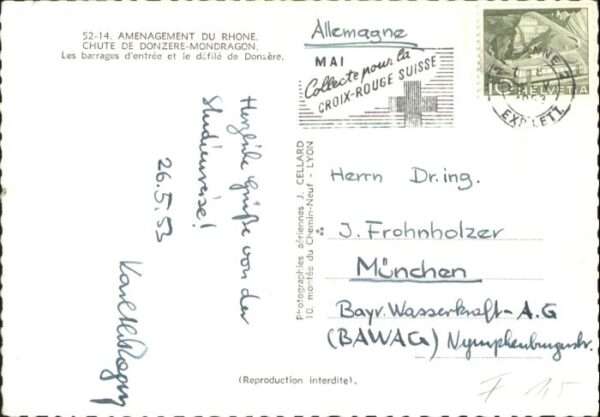 52-14. AMENAGEMENT DU RHONE.
CHUTE DE DONZERE-MONDRAGON.
Les barrages d'entrée et le défilé de Donzère.
Herzliche Grüße von der
Studienreise!
26.5.53
Photographies aériennes J. CELLARD
10, montée du Chemin-Neuf - LYON
Allemagne
MAI
Collecte pour la
CROIX-ROUGE SUISSE
10 HELVETIA
EXP. LETT.
Herrn Dr.ing.
J. Frohnholzer
München
Bayr. Wasserkraft-A.G
(BAWAG) Nymphenburgerstr.
(Reproduction interdite).